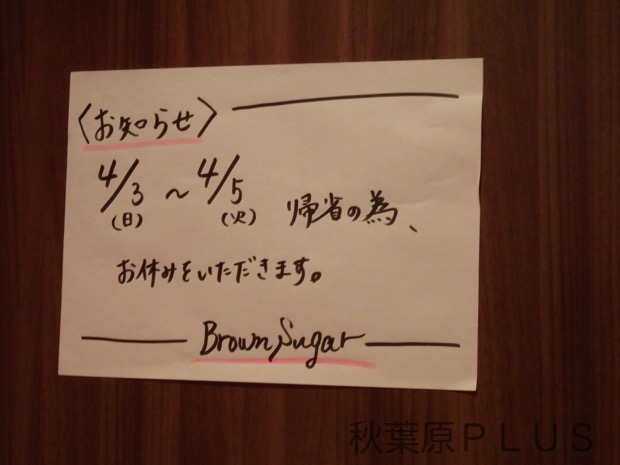 〈お知らせ〉
4/3 ~ 4/5 帰省の為、
(日) (火)
お休みをいただきます。
Brown Sugar
秋葉原PLUS